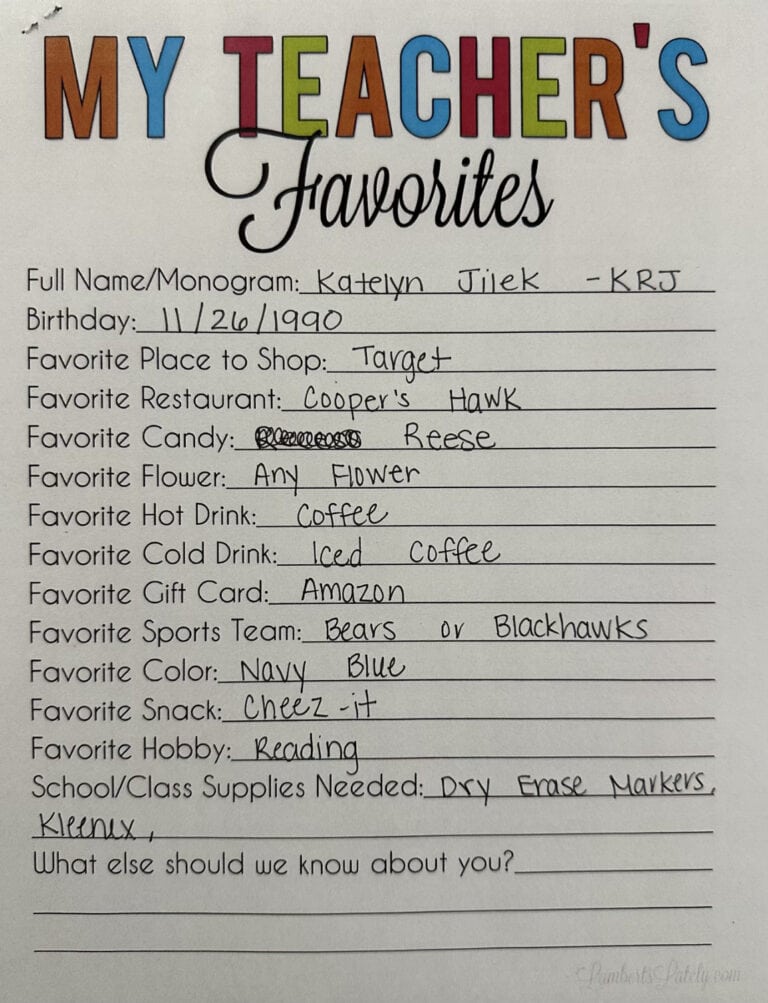 MY TEACHER'S
Favorites
Full Name/Monogram: Katelyn Jilek - KRJ
Birthday: 11/26/1990
Favorite Place to Shop: Target
Favorite Restaurant: Cooper's Hawk
Favorite Candy: Reese
Favorite Flower: Any Flower
Favorite Hot Drink: Coffee
Favorite Cold Drink: Iced Coffee
Favorite Gift Card: Amazon
Favorite Sports Team: Bears or Blackhawks
Favorite Color: Navy Blue
Favorite Snack: Cheez-it
Favorite Hobby: Reading
School/Class Supplies Needed: Dry Erase Markers,
Kleenex,
What else should we know about you?
LambertsLately.com